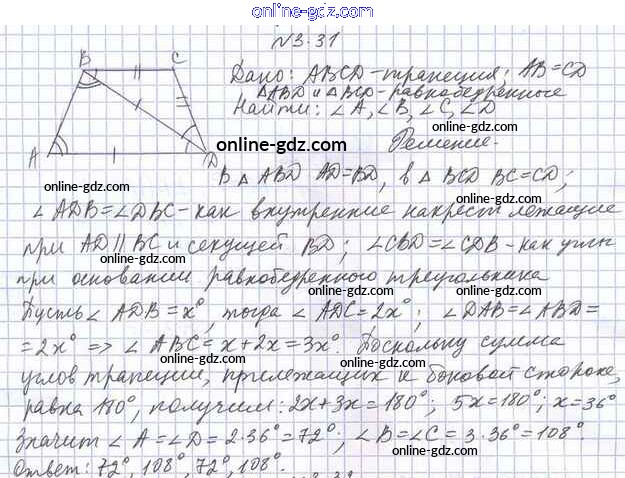 online-gdz.com
N3.31
B C A D
Дано: ABCD-трапеция; AB=CD
△ABD и △BCD-равнобедренные
Найти: ∠A, ∠B, ∠C, ∠D
online-gdz.com
Решение.
В △ ABD AD=BD, в △ BCD BC=CD;
online-gdz.com
online-gdz.com
∠ADB=∠DBC-как внутренние накрест лежащие
при AD∥BC и секущей BD; ∠CBD=∠CDB-как углы
online-gdz.com
online-gdz.com
при основании равнобедренного треугольника
Пусть ∠ ADB=x°, тогда ∠ ADC=2x°; ∠DAB=∠ABD=
online-gdz.com
online-gdz.com
=2x° => ∠ ABC=x+2x=3x°. Поскольку сумма
online-gdz.com
углов трапеции, прилежащих к боковой стороне,
online-gdz.com
равна 180°, получим: 2x+3x=180°; 5x=180°; x=36°
online-gdz.com
Значит ∠A=∠D=2·36°=72°; ∠B=∠C=3·36°=108°.
online-gdz.com
Ответ: 72°, 108°, 72°, 108°.
online-gdz.com